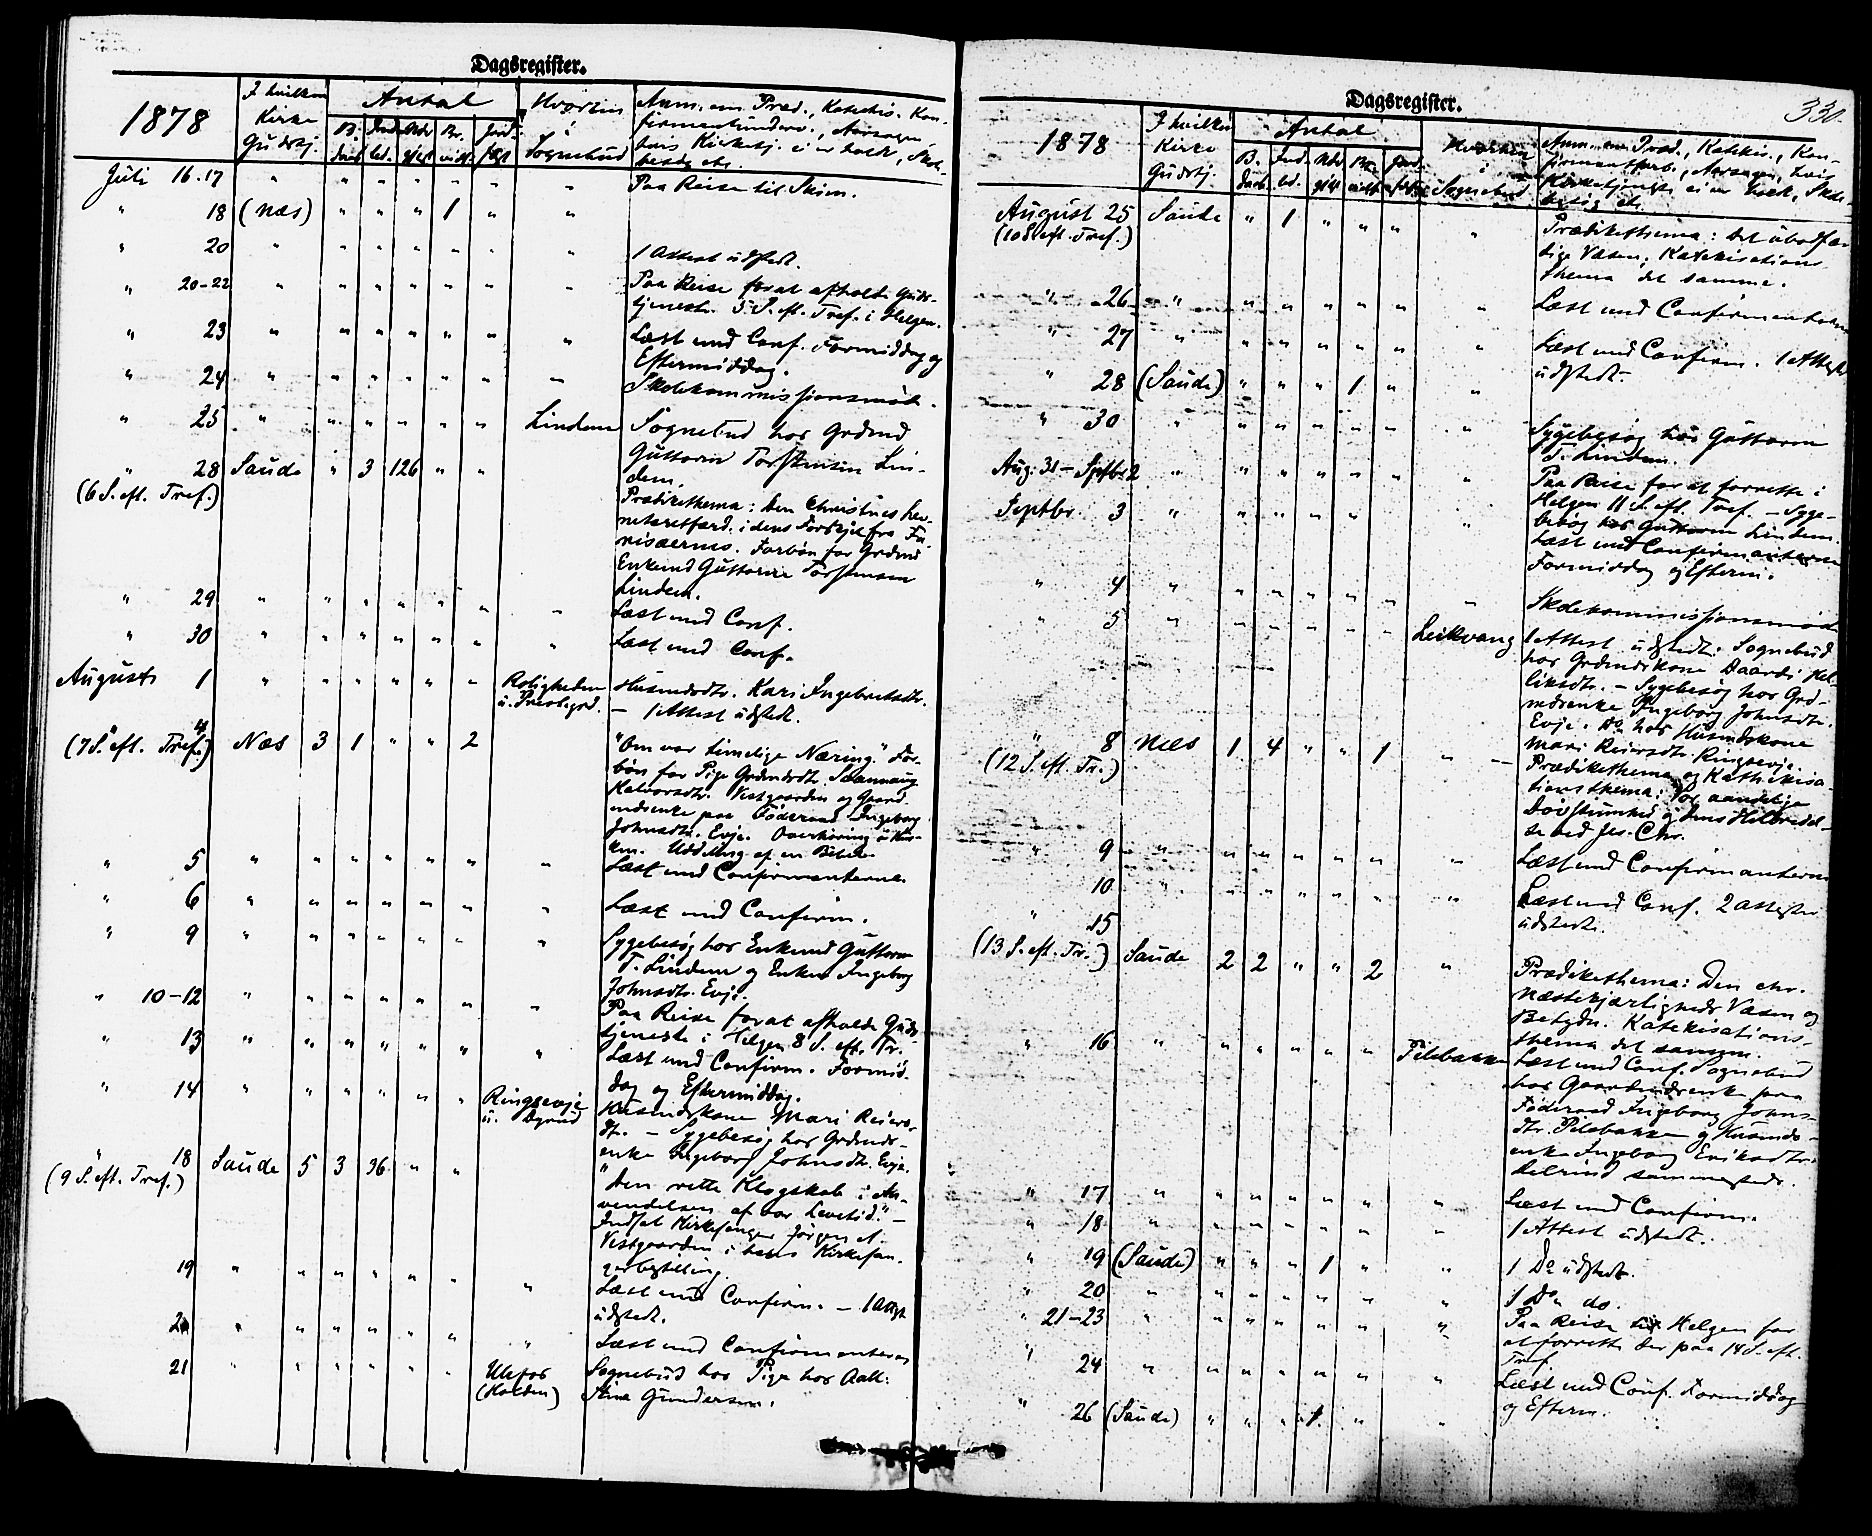 Dagsregister.
1878
I hvilken Kirke Gudstj.
Antal
B. døbt
Ind. led.
Altr gjest
Br. vied.
Jord. fæst
Hvorhen i Sognebud
Anm. om Præd., Katechis. Kon-
firmantunderv., Aarsagen
hvis Kirketj. ei er holdt, Skole-
besøg etc.
Juli 16-17 " " " " " " " Paa Reise til Skien.
" 18 (Næs) " " " 1 " "
" 20 " " " " " " " 1 Attest udstedt.
" 20-22 " " " " " " " Paa Reise forat afholde Guds-
tjeneste 5 S. eft. Tref. i Helgen.
" 23 " " " " " " " Læst med Conf. Formiddag og
Eftermiddag.
" 24 " " " " " " " Skolekommissionsmøde.
" 25 " " " " " " Lindem Sognebud hos Grdmd
Guttorm Torstensen Lin-
dem.
" 28 Saude " 3 126 " "
(6 S. eft. Tref.)
Prædikethema: Den Christnes
i dens Forskjel fra Fa-
risæernes. Forbøn for Grdmd
Enkemd Guttorm Torstensen
Lindem.
" 29 " " " " " " " Læst med Conf.
" 30 " " " " " " " Læst med Conf.
August 1 " " " " " " Roligheden
u. Prestegrd.
Husmdsdtr. Kari Ingebretsdtr.
— 1 Attest udstedt.
" 4
(7 S. eft. Tref.) Næs 3 1 " " 2
"Om vor timelige Næring." For-
bøn for Pige Grdmdsdtr.
Halvorsdtr. Vestgaarden og Gaard-
mdsenke paa Föderaad Ingeborg
Johnsdtr. Evje. Overhøring i Kir-
ken. Uddeling af en Bibel.
" 5 " " " " " " " Læst med Confirmanterne.
" 6 " " " " " " " Læst med Confirm.
" 9 " " " " " " " Sygebesøg hos Enkemd Guttorm
T. Lindem og Enken Ingeborg
Johnsdtr. Evje.
" 10-12 " " " " " " " Paa Reise forat afholde Guds-
tjeneste i Helgen 8 S. eft. Tr.
" 13 " " " " " " " Læst med Confirm. Formid-
dag og Eftermiddag.
" 14 " " " " " " Ringsevje
u.
Husmdskone Mari Reiers-
dtr. — Sygebesøg hos Grdmds-
enke Ingeborg Johnsdtr. Evje.
" 18 Saude 5 3 36 " "
(9 S. eft. Tref.)
"Den rette Klogskab i An-
vendelsen af vor Levetid." —
Indsat Kirkesanger Jørgen A.
Vestgaarden i hans Kirkesan-
gerbestilling.
19 " " " " " " " Læst med Confirm. — 1 Attest
udstedt.
20 " " " " " " " Læst med Confirmanterne
21 " " " " " " Ulefos
(Holden)
Sognebud hos Pige hos Aall:
Stina Gundersen.
Dagsregister.
330.
1878
I hvilken Kirke Gudstj.
Antal
B. døbt
Ind. led.
Altr gjest
Br. viet
Jord. fæstet
Hvorhen i Sognebud
Anm. om Præd., Katekis., Kon-
firmantforb., Aarsagen, hvis
Kirketjeneste ei er holdt, Skole-
besøg etc.
August 25 Saude " 1 " " " "
(10 S. eft. Tref.)
Prædikethema: Det ubodfær-
dige Væsen; Katekisations-
thema det samme.
" 26 " " " " " " " Læst med Confirmanterne
" 27 " " " " " " " Læst med Confirm. 1 Attest
udstedt.
" 28 (Saude) " " " 1 " "
" 30 " " " " " " " Sygebesøg hos Guttorm
T. Lindem.
Aug: 31 - Septbr 2 " " " " " " " Paa Reise for at forrette i
Helgen 11 S. eft. Tref. — Syge-
besøg hos Guttorm Lindem.
Septbr. 3 " " " " " " " Læst med Confirmanterne
Formiddag og Efterm.
" 4 " " " " " " " Skolekommissionsmøde
" 5 " " " " " " Leikvang 1 Attest udstedt. Sognebud
hos Grdmdskone
— Sygebesøg hos Grd-
mdsenke Ingeborg Johnsdtr.
Evje. Do hos Husmdskone
Mari Reiersdtr. Ringsevje.
" 8 Næs 1 4 " " 1 "
(12 S. eft. Tr.)
Prædikethema og Kathekisa-
tionsthema: Vor aandelige
Døvstumhed og dens Helbredel-
se ved Jes. Chr.
" 9 " " " " " " " Læst med Confirmanterne
10 " " " " " " " Læst med Conf. 2 Attester
udstedt.
" 15
(13 S. eft. Tr.) Saude 2 2 " " 2 "
Prædikethema: Den chr.
Næstekjærligheds Væsen og
Betydn. Katekisations-
thema det samme.
" 16 " " " " " " Pilebakken Læst med Conf. Sognebud
hos Gaardmdsenke paa
Föderaad Ingeborg Johns-
dtr. Pilebakken og Husmds-
enke Ingeborg Eriksdtr.
sammesteds.
" 17 " " " " " " " Læst med Confirm.
" 18 " " " " " " " 1 Attest udstedt.
" 19 (Saude) " " " 1 " " 1 Do udstedt.
" 20 " " " " " " " 1 Do do.
" 21-23 " " " " " " " Paa Reise til Helgen for
at forrette der paa 14 S. eft.
Tref.
" 24 " " " " " " " Læst med Conf. Formiddag
og Efterm.
" 26 (Saude) " " " 1 " "